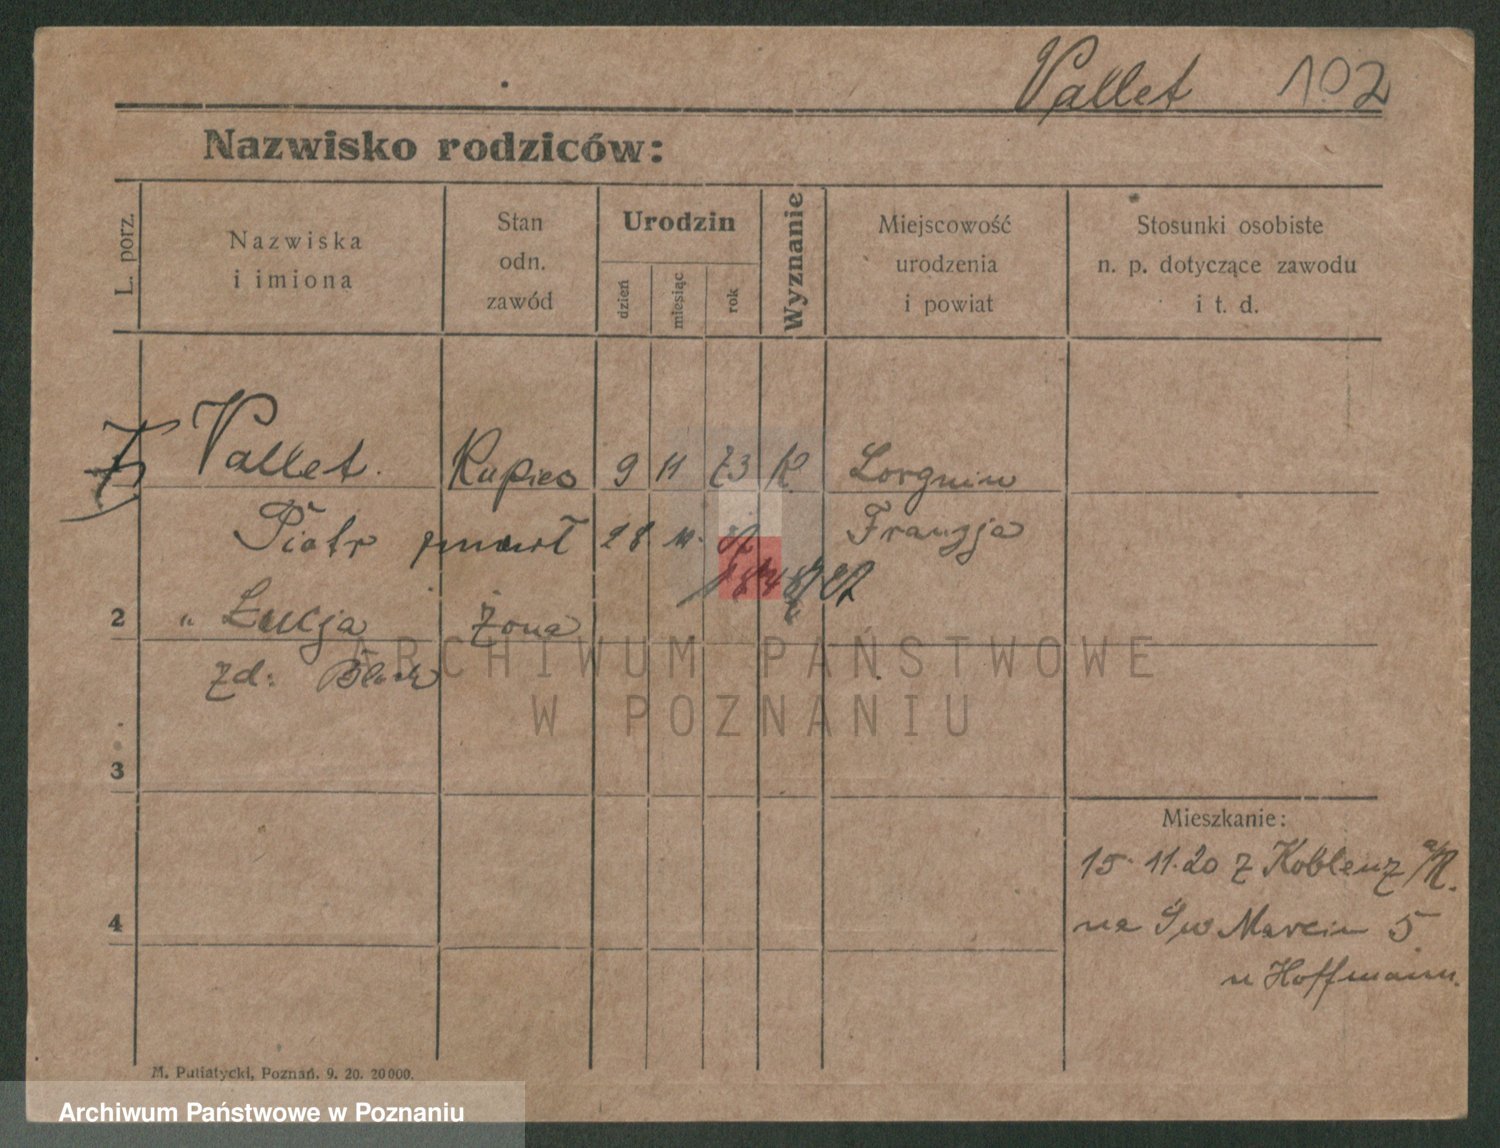 Vallet 102
Nazwisko rodziców:
L. porz.
Nazwiska
i imiona
Stan
odn.
zawód
Urodzin
dzień
miesiąc
rok
Wyznanie
Miejscowość
urodzenia
i powiat
Stosunki osobiste
n. p. dotyczące zawodu
i t. d.
Vallet. Kupiec 9 11 73 K
Piotr zmarł 28
2 " Łucja żona
zd:
3
4
Mieszkanie:
15.11.20 z Koblenz a/R.
na Św Marcin 5
u Hoffmann.
M. Putiatycki, Poznań. 9. 20. 20000.
ARCHIWUM PAŃSTWOWE
W POZNANIU
Archiwum Państwowe w Poznaniu